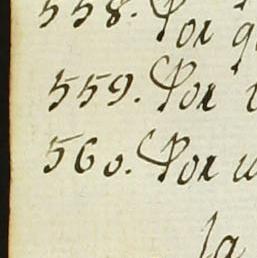 558. Por q
559. Por
560. Por u
la